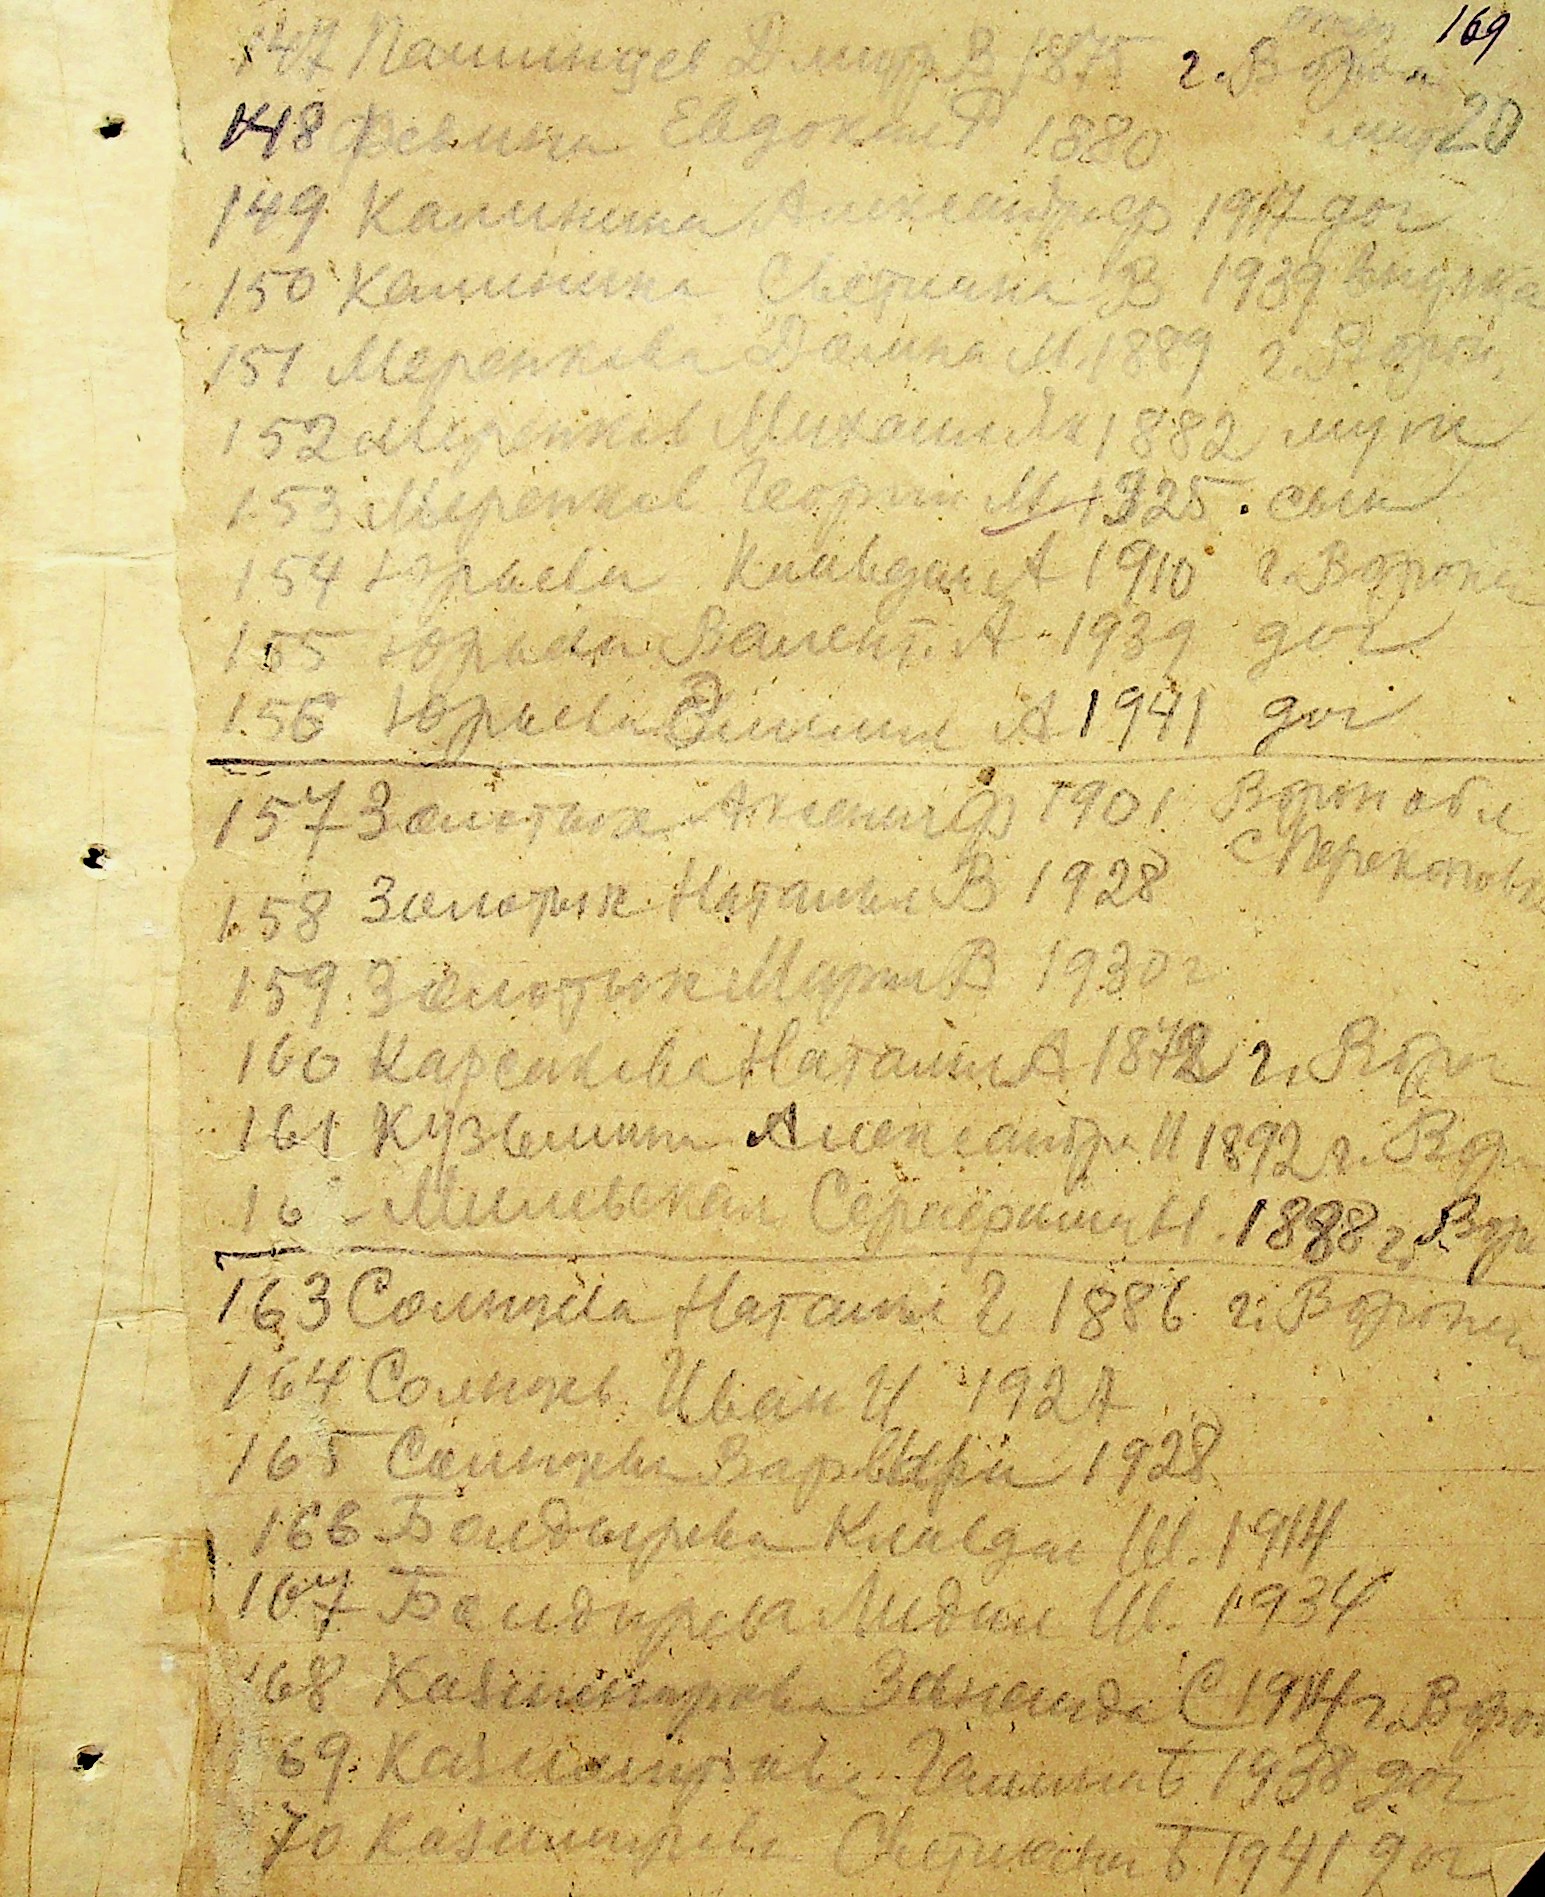 169
147 Дмитр В 1875 г. Ворон
20
148 Евдокия Р 1880
149 Калинина Александр Ф 1917 доч
150 Калинина Светлана В 1939 внучка
151 Меренкова Домна М 1889 г. Ворон,
152 Меренков Михаил Як 1882 муж
153 Меренков Георгий М 1925 сын
154 Юрьева Клавдия А 1910 г. Воронеж
155 Юрьева Валент. А 1939 доч
156 Юрьева А 1941 доч
157 Золотых Аксенья Ф 1901 Ворон обл
с
158 Золотых Наталья В 1928
159 Золотых Мария В 1930 г
160 Карсакова Наталья А 1872 г. Вор
161 Кузьмина Александра И 1892 г. Вор
16 Серафима Н. 1888 г. Вор
163 Солнцева Наталья Г 1886 г. Воронеж
164 Иван И 1927
165 Варвара 1928
166 Болдырева Клавдия Ив. 1914
167 Болдырева Лидия Ив. 1934
168 Казимирова Зинаида С 1914 г. Ворон
69 Казимирова Галина Б 1938 доч
70 Казимирова Светлана Б 1941 доч